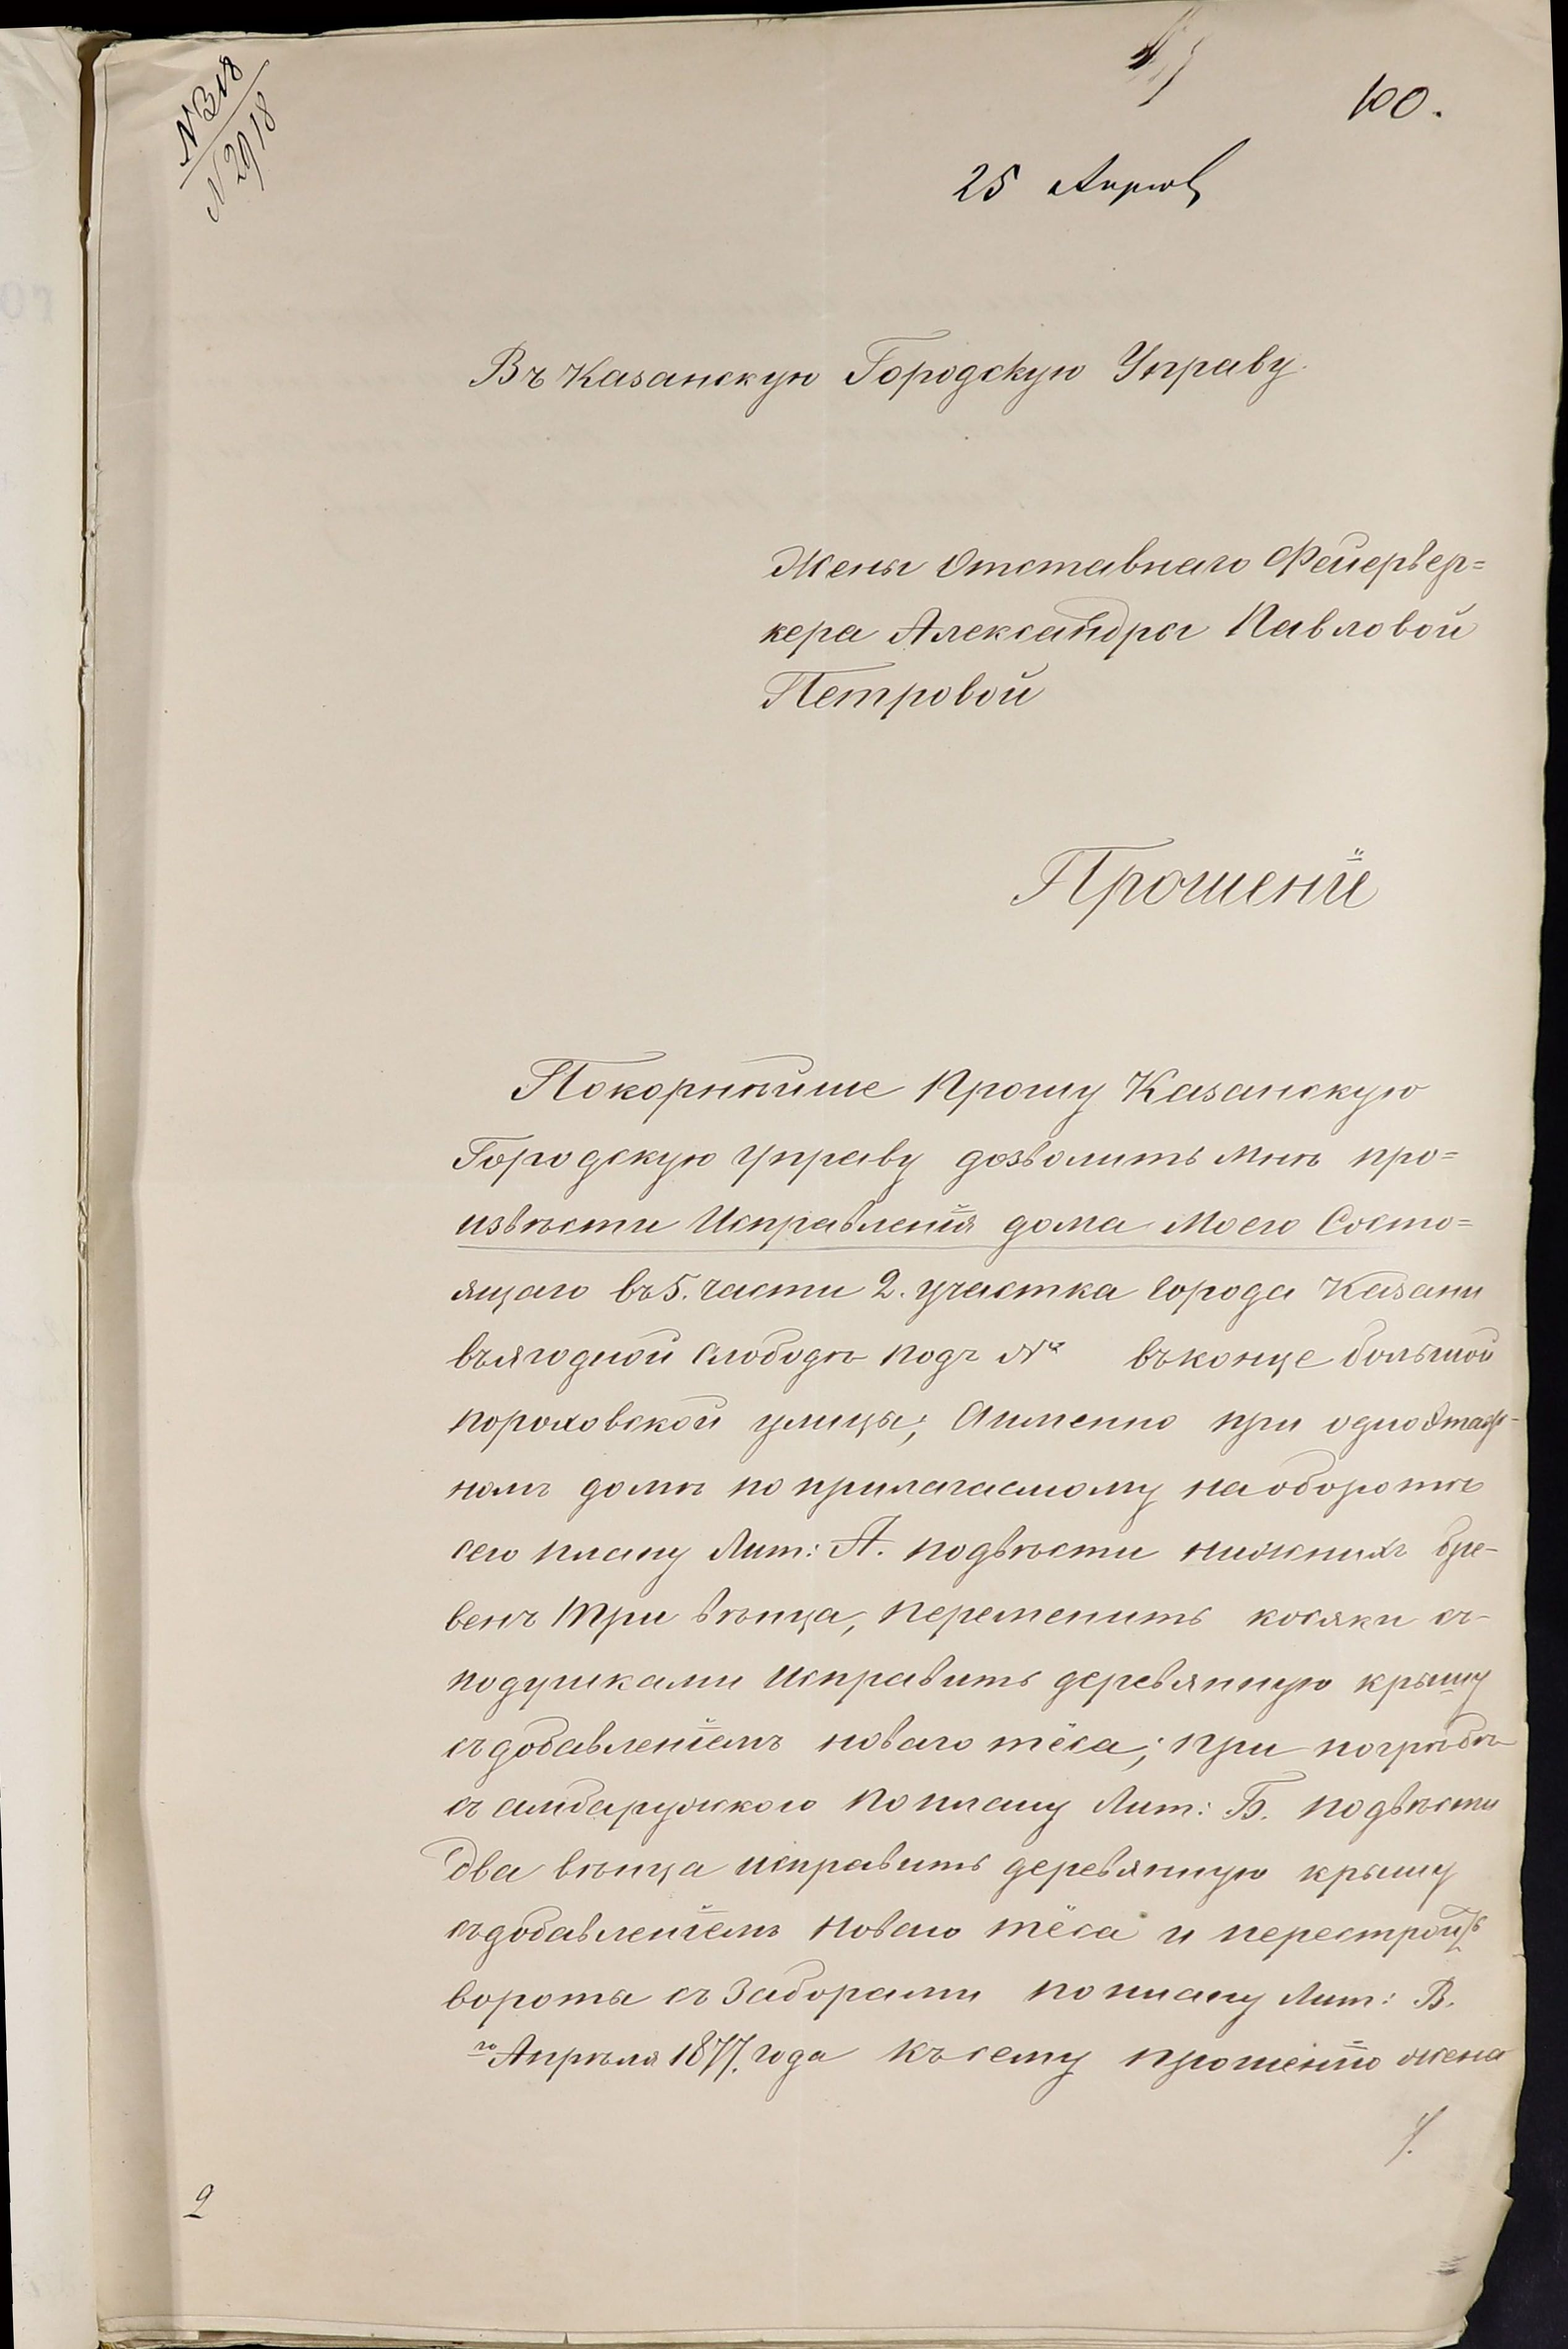 N 318
N 2918
100.
25 Апрѣл
Въ Казанскую Городскую Управу.
Жены Отставнаго Фейервер=
кера Александры Павловой
Петровой
Прошенiе
Покорнѣйше Прошу Казанскую
Городскую Управу дозволить Мнѣ про=
извѣсти Исправленiя дома Моего Состо=
ящаго въ 5. части 2. участка города Казани
въ Ягодной Слободѣ подъ № въ конце большой
пороховской улицы; Аименно при одноэтаж-
номъ домѣ по прилагаемому на оборотѣ
сего плану Лит: А. подвѣсти нижнихъ бре-
венъ три вѣнца, переменить косяки съ-
подушками исправить деревянную крышу
съ добавленiемъ новаго тёса; при погрѣбѣ
съ амбарушкою по плану Лит: Б. подвѣсти
два вѣнца исправить деревянную крышу
съ добавленiемъ новаго тёса и перестроить
вороты съ Заборами по плану Лит: В.
го Апрѣля 1877. года Къ сему прошенiю жена
2